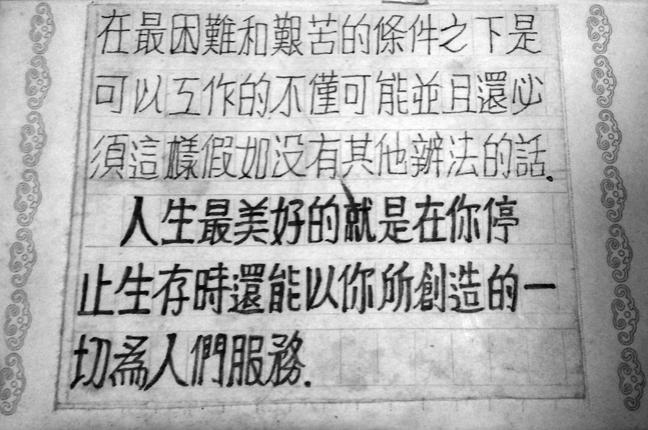 在最困難和艱苦的條件之下是
可以工作的不僅可能並且還必
須這樣假如没有其他辦法的話.
人生最美好的就是在你停
止生存時還能以你所創造的一
切為人們服務.